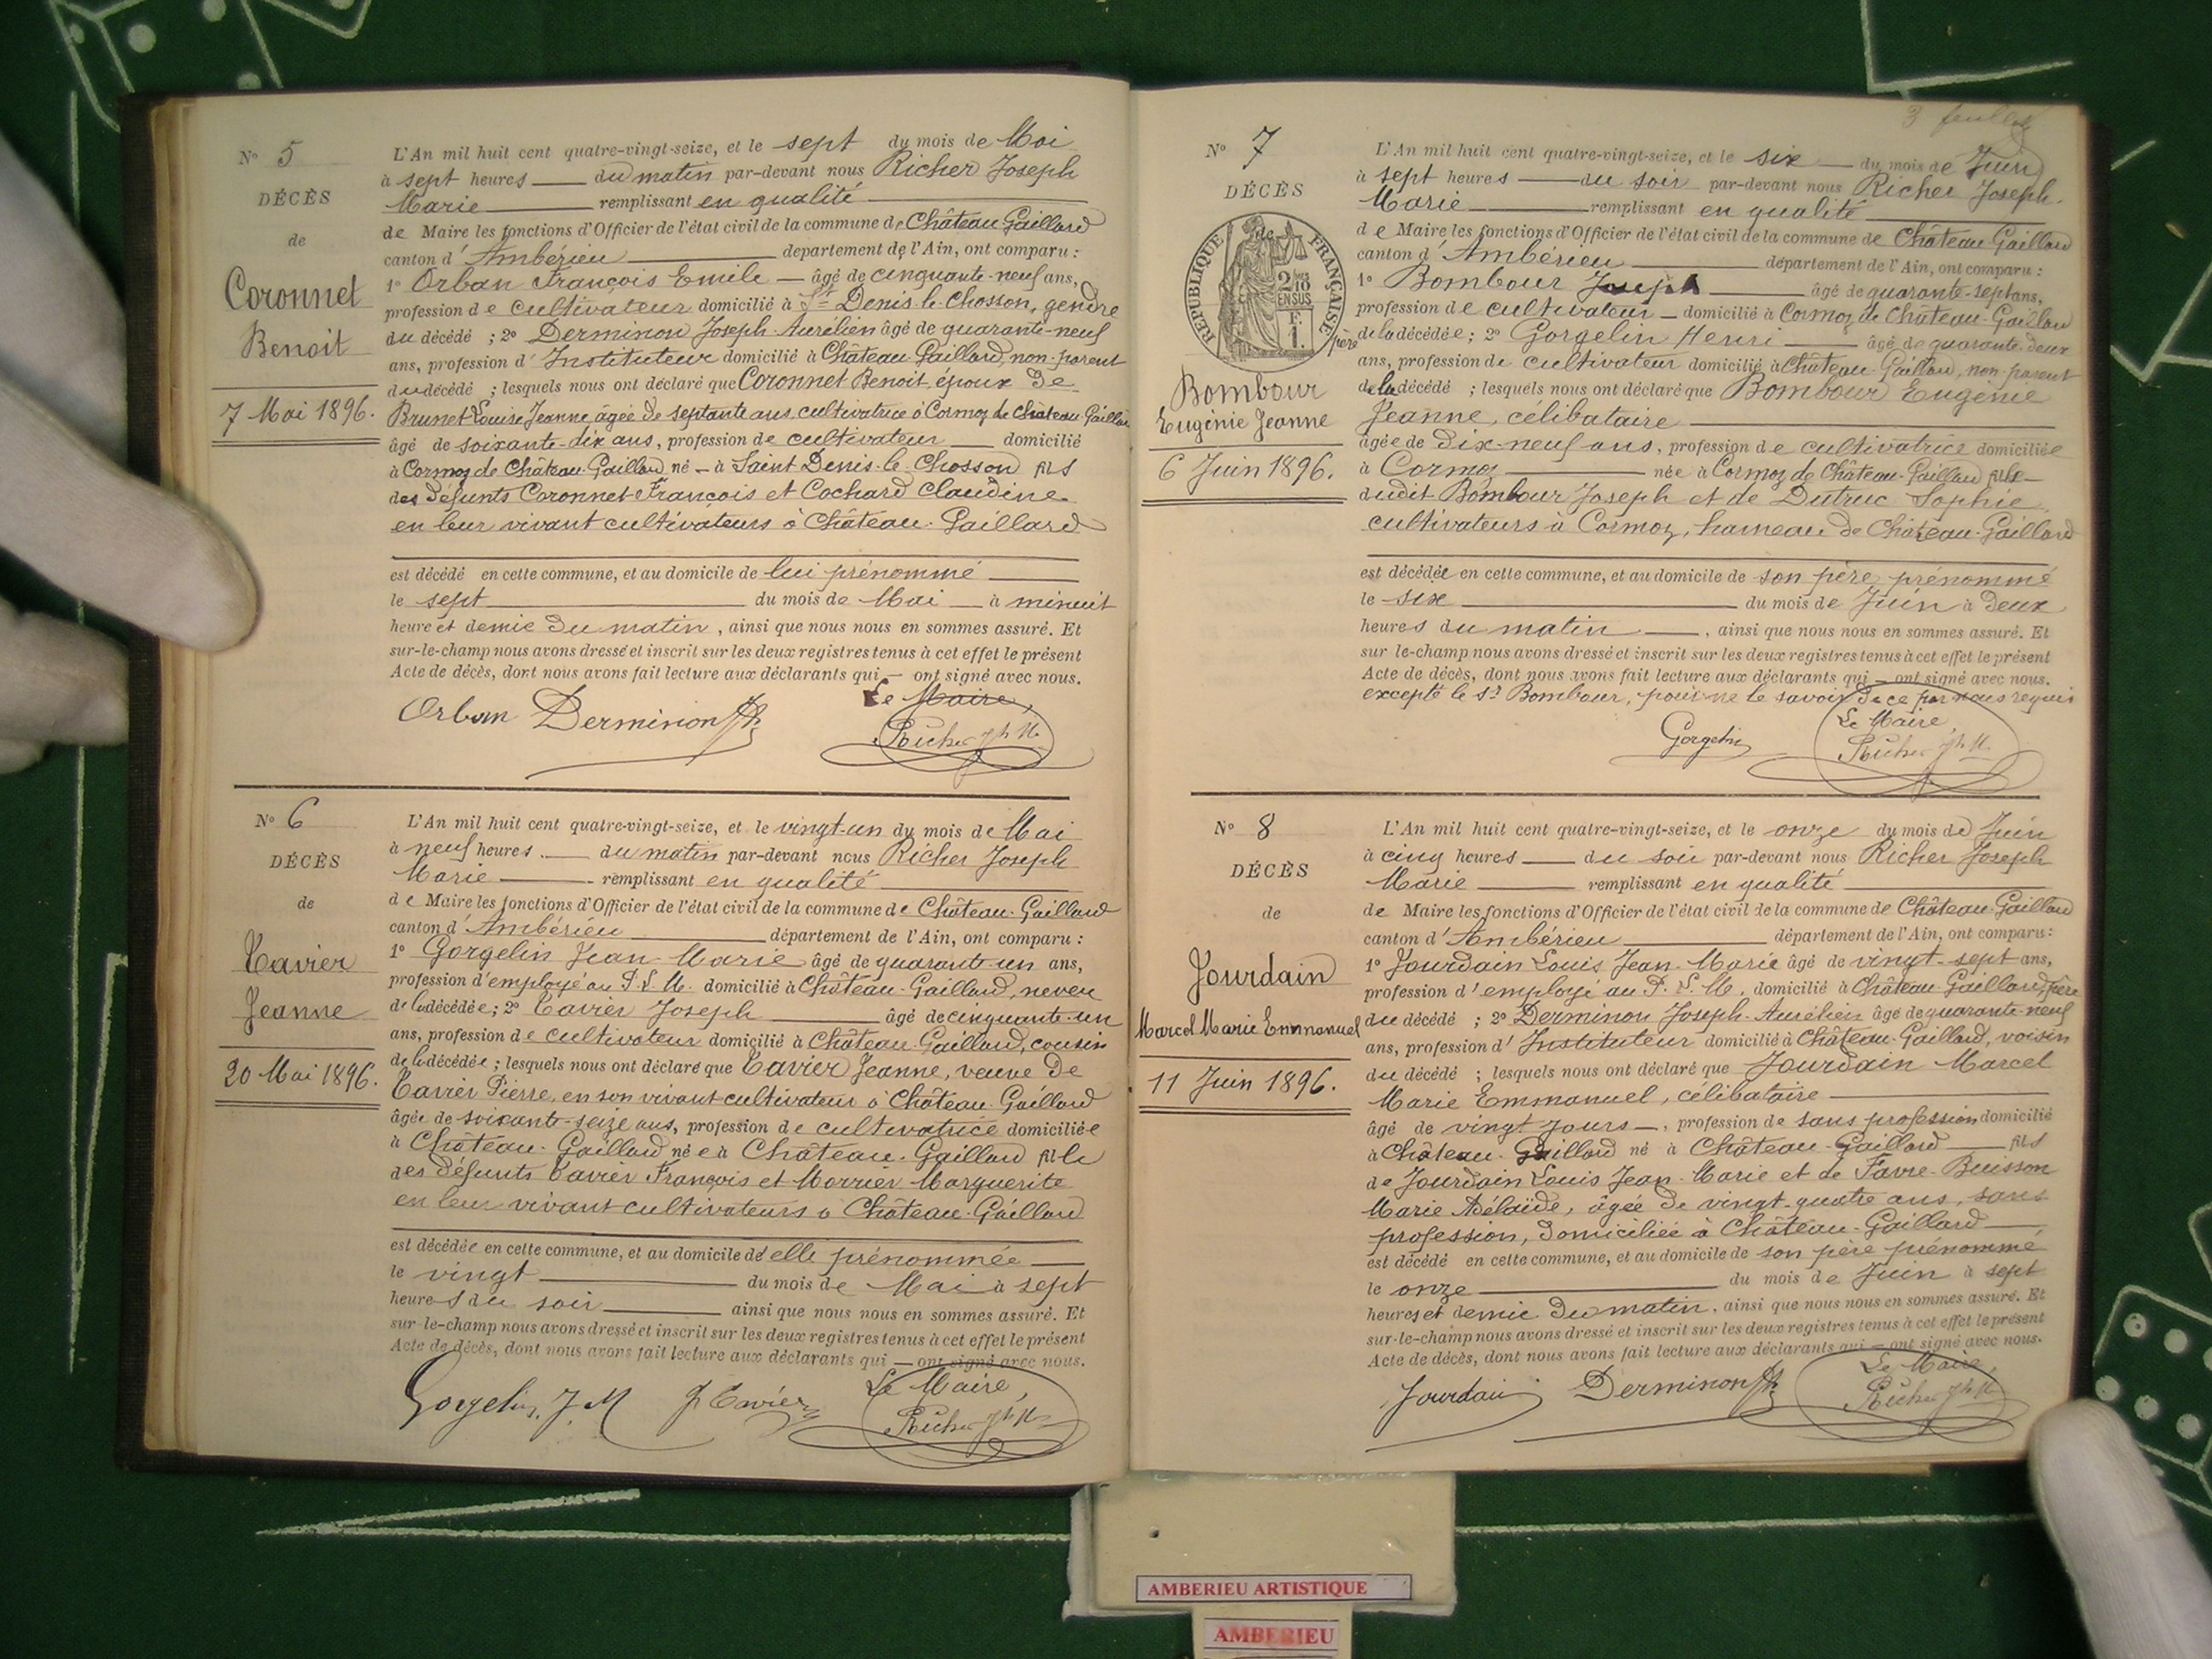 N° 5
DÉCÈS
de
Coronnet
Benoit
7 Mai 1896.
L'An mil huit cent quatre-vingt-seize, et le sept du mois de Mai
à sept heures du matin par-devant nous Richer Joseph
Marie remplissant en qualité
de Maire les fonctions d'Officier de l'état civil de la commune de Château-Gaillard
canton d'Ambérieu département de l'Ain, ont comparu :
1° Orban François Emile âgé de cinquante-neuf ans,
profession de cultivateur domicilié à St Denis-le-Chosson, gendre
du décédé ; 2° Derminon Joseph-Aurélien âgé de quarante-neuf
ans, profession d'Instituteur domicilié à Château-Gaillard, non-parent
du décédé ; lesquels nous ont déclaré que Coronnet Benoit, époux de
Brunet Louise Jeanne, âgée de septante ans, cultivatrice à Cormoz de Château-Gaillard
âgé de soixante-dix ans, profession de cultivateur domicilié
à Cormoz de Château-Gaillard né à Saint Denis-le-Chosson fils
des défunts Coronnet François et Cochard Claudine
en leur vivant cultivateurs à Château-Gaillard
est décédé en cette commune, et au domicile de lui prénommé
le sept du mois de Mai à minuit
heure et demie du matin, ainsi que nous nous en sommes assuré. Et
sur-le-champ nous avons dressé et inscrit sur les deux registres tenus à cet effet le présent
Acte de décès, dont nous avons fait lecture aux déclarants qui ont signé avec nous.
Le Maire,
Orban Derminon Jh Richer Jh M
N° 6
DÉCÈS
de
Tavier
Jeanne
20 Mai 1896.
L'An mil huit cent quatre-vingt-seize, et le vingt-un du mois de Mai
à neuf heures du matin par-devant nous Richer Joseph
Marie remplissant en qualité
de Maire les fonctions d'Officier de l'état civil de la commune de Château-Gaillard
canton d'Ambérieu département de l'Ain, ont comparu :
1° Gorgelin Jean Marie âgé de quarante-un ans,
profession d'employé au P. L. M. domicilié à Château-Gaillard, neveu
de la décédée ; 2° Tavier Joseph âgé de cinquante-un
ans, profession de cultivateur domicilié à Château-Gaillard, cousin
de la décédée ; lesquels nous ont déclaré que Tavier Jeanne, veuve de
Tavier Pierre, en son vivant cultivateur à Château-Gaillard
âgée de soixante-seize ans, profession de cultivatrice domiciliée
à Château-Gaillard née à Château-Gaillard fille
des défunts Tavier François et Marguerite
en leur vivant cultivateurs à Château-Gaillard
est décédée en cette commune, et au domicile d'elle prénommée
le vingt du mois de Mai à sept
heures du soir ainsi que nous nous en sommes assuré. Et
sur-le-champ nous avons dressé et inscrit sur les deux registres tenus à cet effet le présent
Acte de décès, dont nous avons fait lecture aux déclarants qui ont signé avec nous.
Le Maire,
Gorgelin J. M J Tavier Richer Jh M
3 feuillet
N° 7
DÉCÈS
de
RÉPUBLIQUE FRANÇAISE
2/10 EN SUS
F. 1.
Bombour
Eugénie Jeanne
6 Juin 1896.
L'An mil huit cent quatre-vingt-seize, et le six du mois de Juin
à sept heures du soir par-devant nous Richer Joseph
Marie remplissant en qualité
de Maire les fonctions d'Officier de l'état civil de la commune de Château-Gaillard
canton d'Ambérieu département de l'Ain, ont comparu :
1° Bombour Joseph âgé de quarante-sept ans,
profession de cultivateur domicilié à Cormoz de Château-Gaillard
père de la décédée ; 2° Gorgelin Henri âgé de quarante-deux
ans, profession de cultivateur domicilié à Château-Gaillard, non-parent
de la décédé ; lesquels nous ont déclaré que Bombour Eugénie
Jeanne, célibataire
âgée de dix-neuf ans, profession de cultivatrice domiciliée
à Cormoz née à Cormoz de Château-Gaillard fille
dudit Bombour Joseph et de Dutruc Sophie
cultivateurs à Cormoz, hameau de Château-Gaillard
est décédée en cette commune, et au domicile de son père prénommé
le six du mois de Juin à deux
heures du matin, ainsi que nous nous en sommes assuré. Et
sur-le-champ nous avons dressé et inscrit sur les deux registres tenus à cet effet le présent
Acte de décès, dont nous avons fait lecture aux déclarants qui ont signé avec nous.
excepté le Sr Bombour, pour ne le savoir de ce par nous requis
Le Maire,
Gorgelin Richer Jh M
N° 8
DÉCÈS
de
Jourdain
Marcel Marie Emmanuel
11 Juin 1896.
L'An mil huit cent quatre-vingt-seize, et le onze du mois de Juin
à cinq heures du soir par-devant nous Richer Joseph
Marie remplissant en qualité
de Maire les fonctions d'Officier de l'état civil de la commune de Château-Gaillard
canton d'Ambérieu département de l'Ain, ont comparu :
1° Jourdain Louis Jean-Marie âgé de vingt-sept ans,
profession d'employé au P. L. M. domicilié à Château-Gaillard, père
du décédé ; 2° Derminon Joseph-Aurélien âgé de quarante-neuf
ans, profession d'Instituteur domicilié à Château-Gaillard, voisin
du décédé ; lesquels nous ont déclaré que Jourdain Marcel
Marie Emmanuel, célibataire
âgé de vingt jours, profession de sans profession domicilié
à Château-Gaillard né à Château-Gaillard fils
de Jourdain Louis Jean-Marie et de Favre-Buisson
Marie Adélaïde, âgée de vingt-quatre ans, sans
profession, domiciliée à Château-Gaillard
est décédé en cette commune, et au domicile de son père prénommé
le onze du mois de Juin à sept
heures et demie du matin, ainsi que nous nous en sommes assuré. Et
sur-le-champ nous avons dressé et inscrit sur les deux registres tenus à cet effet le présent
Acte de décès, dont nous avons fait lecture aux déclarants qui ont signé avec nous.
Le Maire,
Jourdain Derminon Jh Richer Jh M
AMBERIEU ARTISTIQUE
AMBERIEU